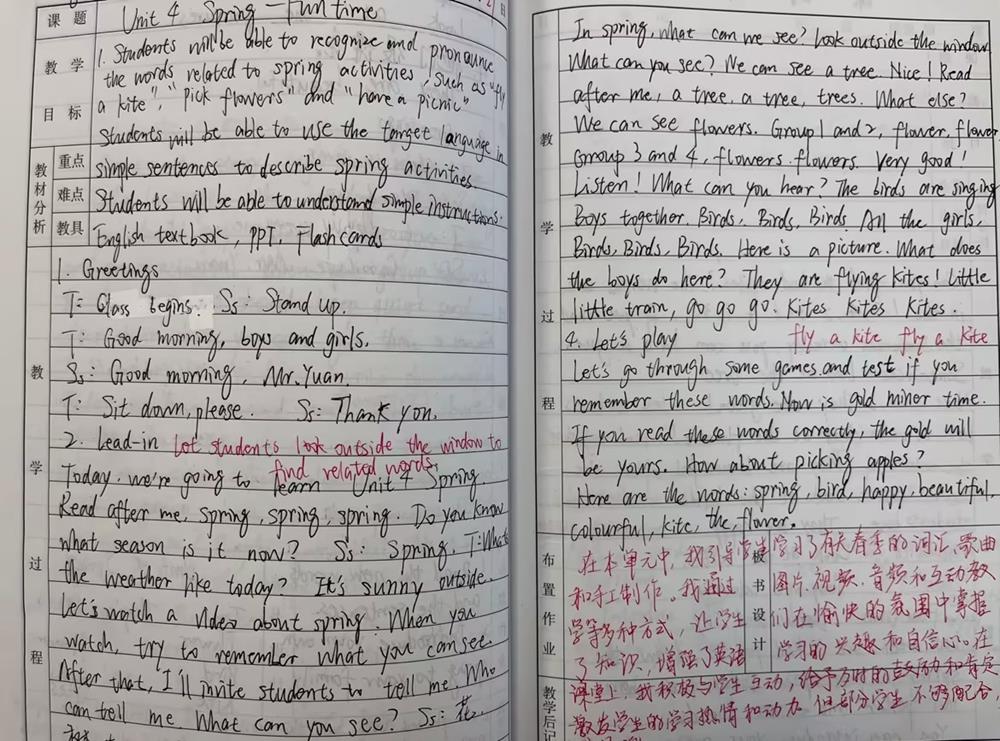 课题 Unit 4 Spring - Fun time
教学目标
1. Students will be able to recognize and pronounce
the words related to spring activities, such as "fly
a kite", "pick flowers" and "have a picnic"
Students will be able to use the target language in
教材分析
重点 simple sentences to describe spring activities.
难点 Students will be able to understand simple instructions.
教具 English textbook, PPT, Flashcards
教学过程
1. Greetings
T: Class begins. Ss: Stand up.
T: Good morning, boys and girls.
Ss: Good morning, Mr. Yuan.
T: Sit down, please. Ss: Thank you.
2. Lead-in Let students look outside the window to
find related words.
Today, we're going to learn Unit 4 Spring
Read after me, spring, spring, spring. Do you know
what season is it now? Ss: Spring. T: What's
the weather like today? It's sunny outside.
Let's watch a video about spring. When you
watch, try to remember what you can see.
After that, I'll invite students to tell me. Who
can tell me What can you see? Ss: 花,
教学过程
In spring, what can we see? Look outside the window.
What can you see? We can see a tree. Nice! Read
after me, a tree, a tree, trees. What else?
We can see flowers. Group 1 and 2, flower, flower
Group 3 and 4, flowers flowers. Very good!
Listen! What can you hear? The birds are singing
Boys together. Birds, Birds, Birds. All the girls,
Birds, Birds, Birds. Here is a picture. What does
the boys do here? They are flying kites! Little
little train, go go go. Kites Kites Kites.
4. Let's play fly a kite fly a kite
Let's go through some games and test if you
remember these words. Now is gold miner time.
If you read these words correctly, the gold will
be yours. How about picking apples?
Here are the words: spring, bird, happy, beautiful,
colourful, kite, the, flower.
布置作业
板书设计
在本单元中,我引导学生学习了有关春季的词汇、歌曲
和手工制作。我通过图片、视频、音频和互动教
学等多种方式,让学生们在愉快的氛围中掌握
了知识,增强了英语学习的兴趣和自信心。在
教学后记
课堂上,我积极与学生互动,给予及时的鼓励和肯定
激发学生的学习热情和动力。但部分学生不够配合